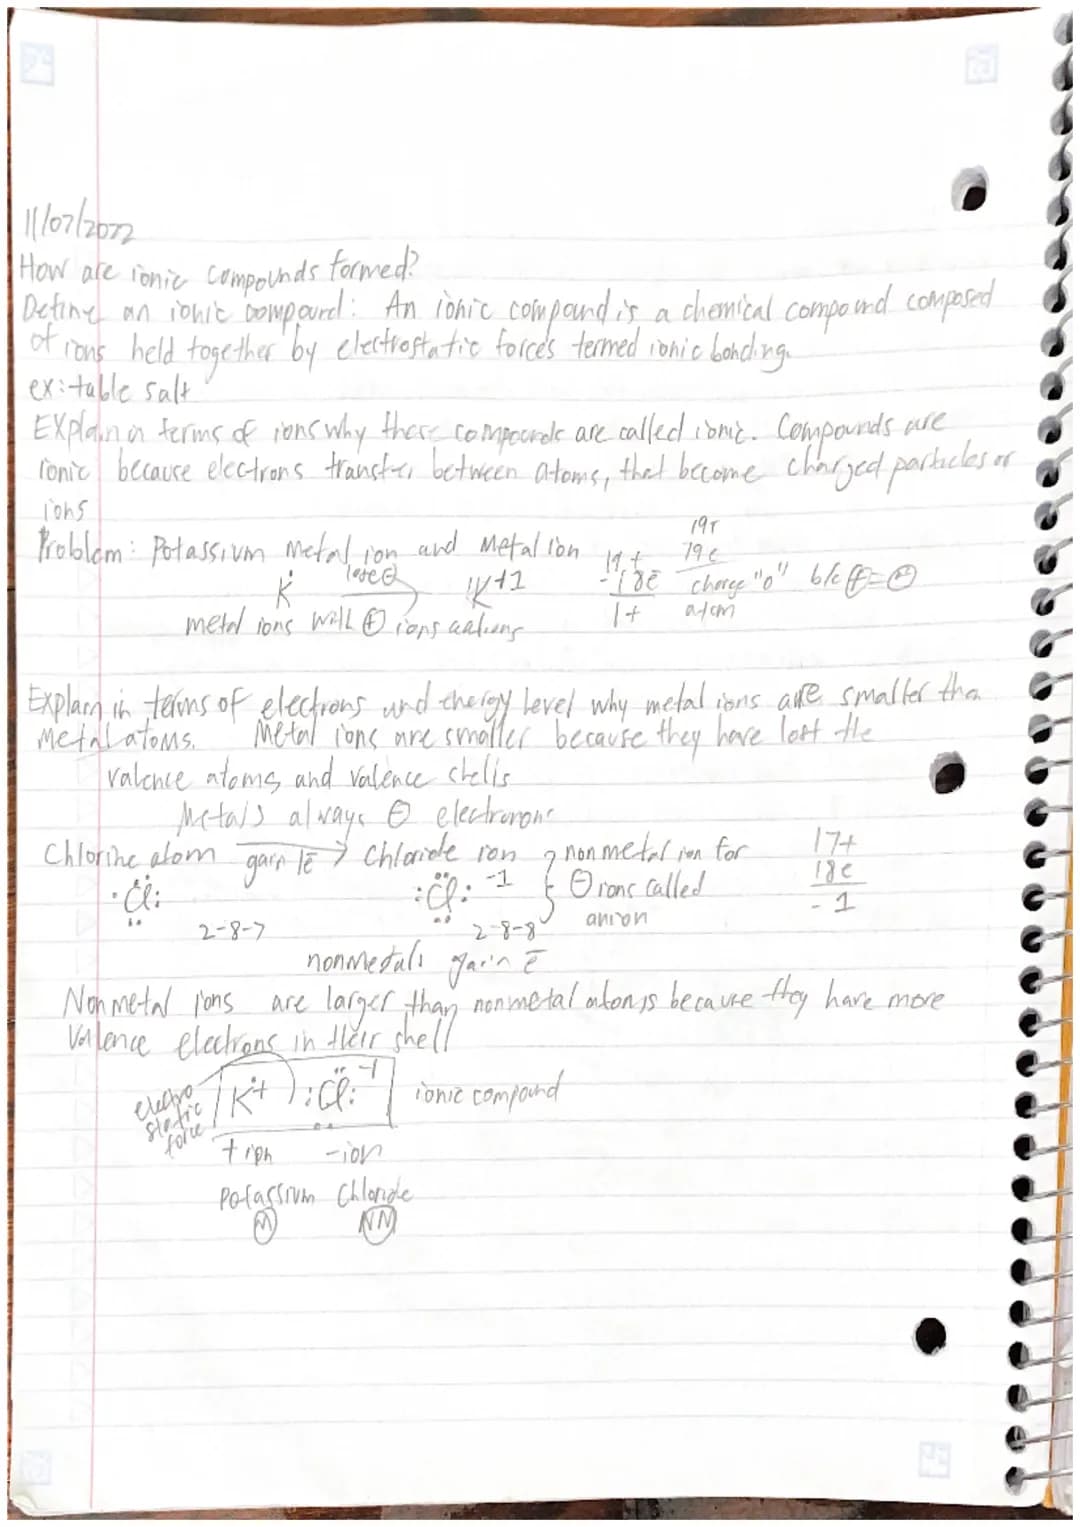 11/07/2022
How are ionic compounds formed?
Define an ionic compound: An ionic compound is a chemical compound composed
of ions held together by electrostatic forces termed ionic bonding.
ex: table salt
Explain in terms of ions why these compounds are called ionic. Compounds are
ionic because electrons transfer between atoms, that become charged particles or
ions
19+
Problem: Potassium Metal ion and Metal ion 19+ 19e
K lose ⊖ K+1 -18e charge "0" b/c ⊕=⊖
metal ions will ⊕ ions cations 1+ atom
Explain in terms of electrons and energy level why metal ions are smaller tha
Metal atoms. Metal ions are smaller because they have lost the
valence atoms and valence shells
Metals always ⊖ electrons
Chlorine atom gain 1e̅ → Chloride ion } nonmetal ion for 17+
·C̈l: :C̈l: -1 ⊖ ions called 18e
2-8-7 2-8-8 anion -1
nonmetals gain e̅
Nonmetal ions are larger than nonmetal atoms because they have more
Valence electrons in their shell
electro static force K+ :C̈l: -1 ionic compound
+ ion -ion
Potassium Chloride
M NM